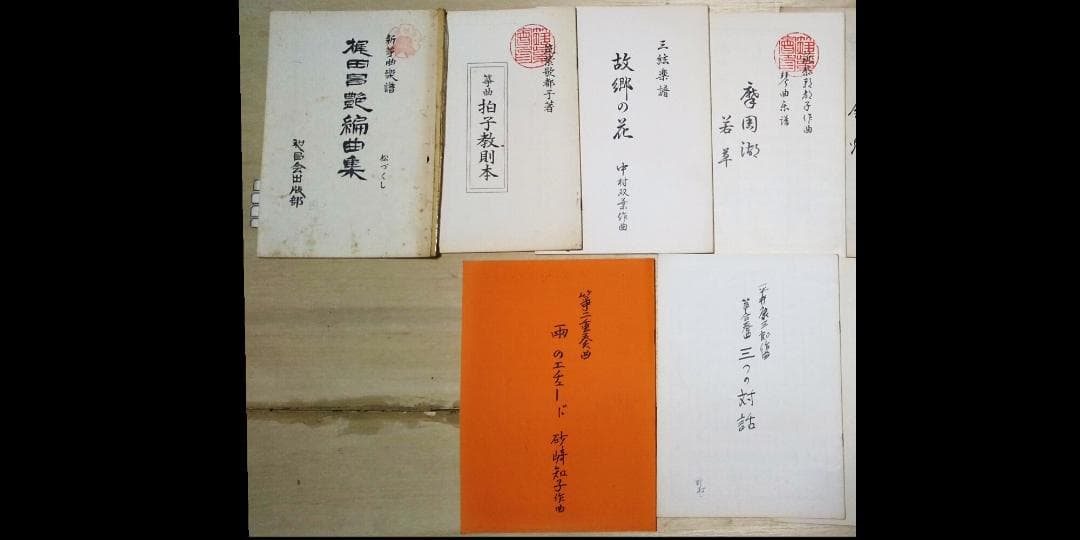 新箏曲楽譜
編曲集
松づくし
会出版部
筑紫歌都子著
箏曲
拍子教則本
三絃楽譜
故郷の花
中村双葉作曲
歌都子作曲
箏曲楽譜
摩周湖
若草
箏二重奏曲
雨のエチュード
砂崎知子作曲
平井康三郎作曲
三つの対話